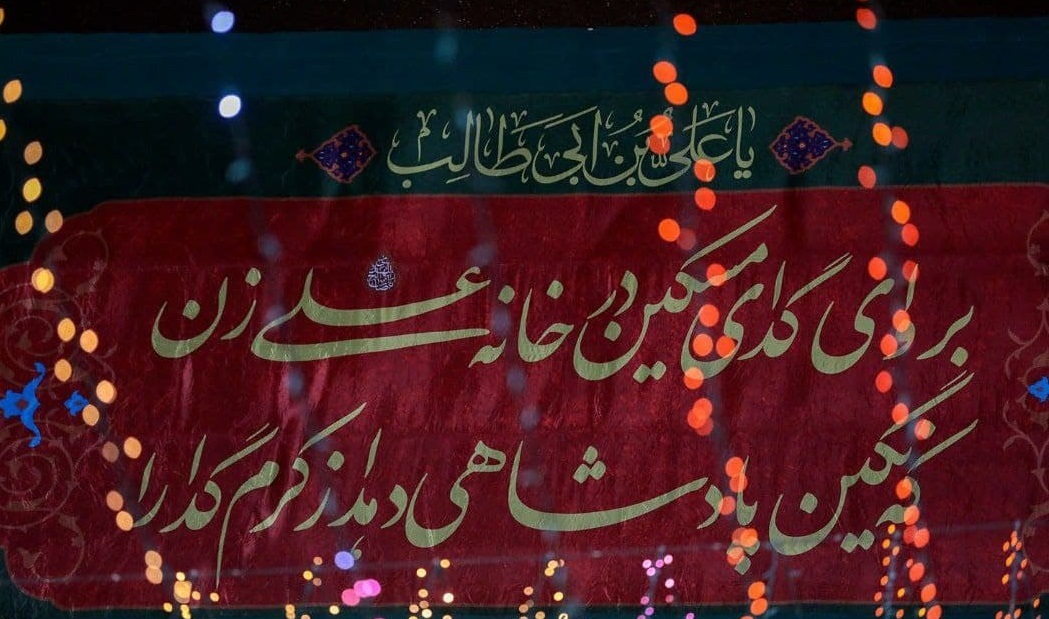 یا عَلیِّ بنُ اَبی طَالِب
برو ای گدای مسکین در خانه علی زن
که نگین پادشاهی دهد از کرم گدا را